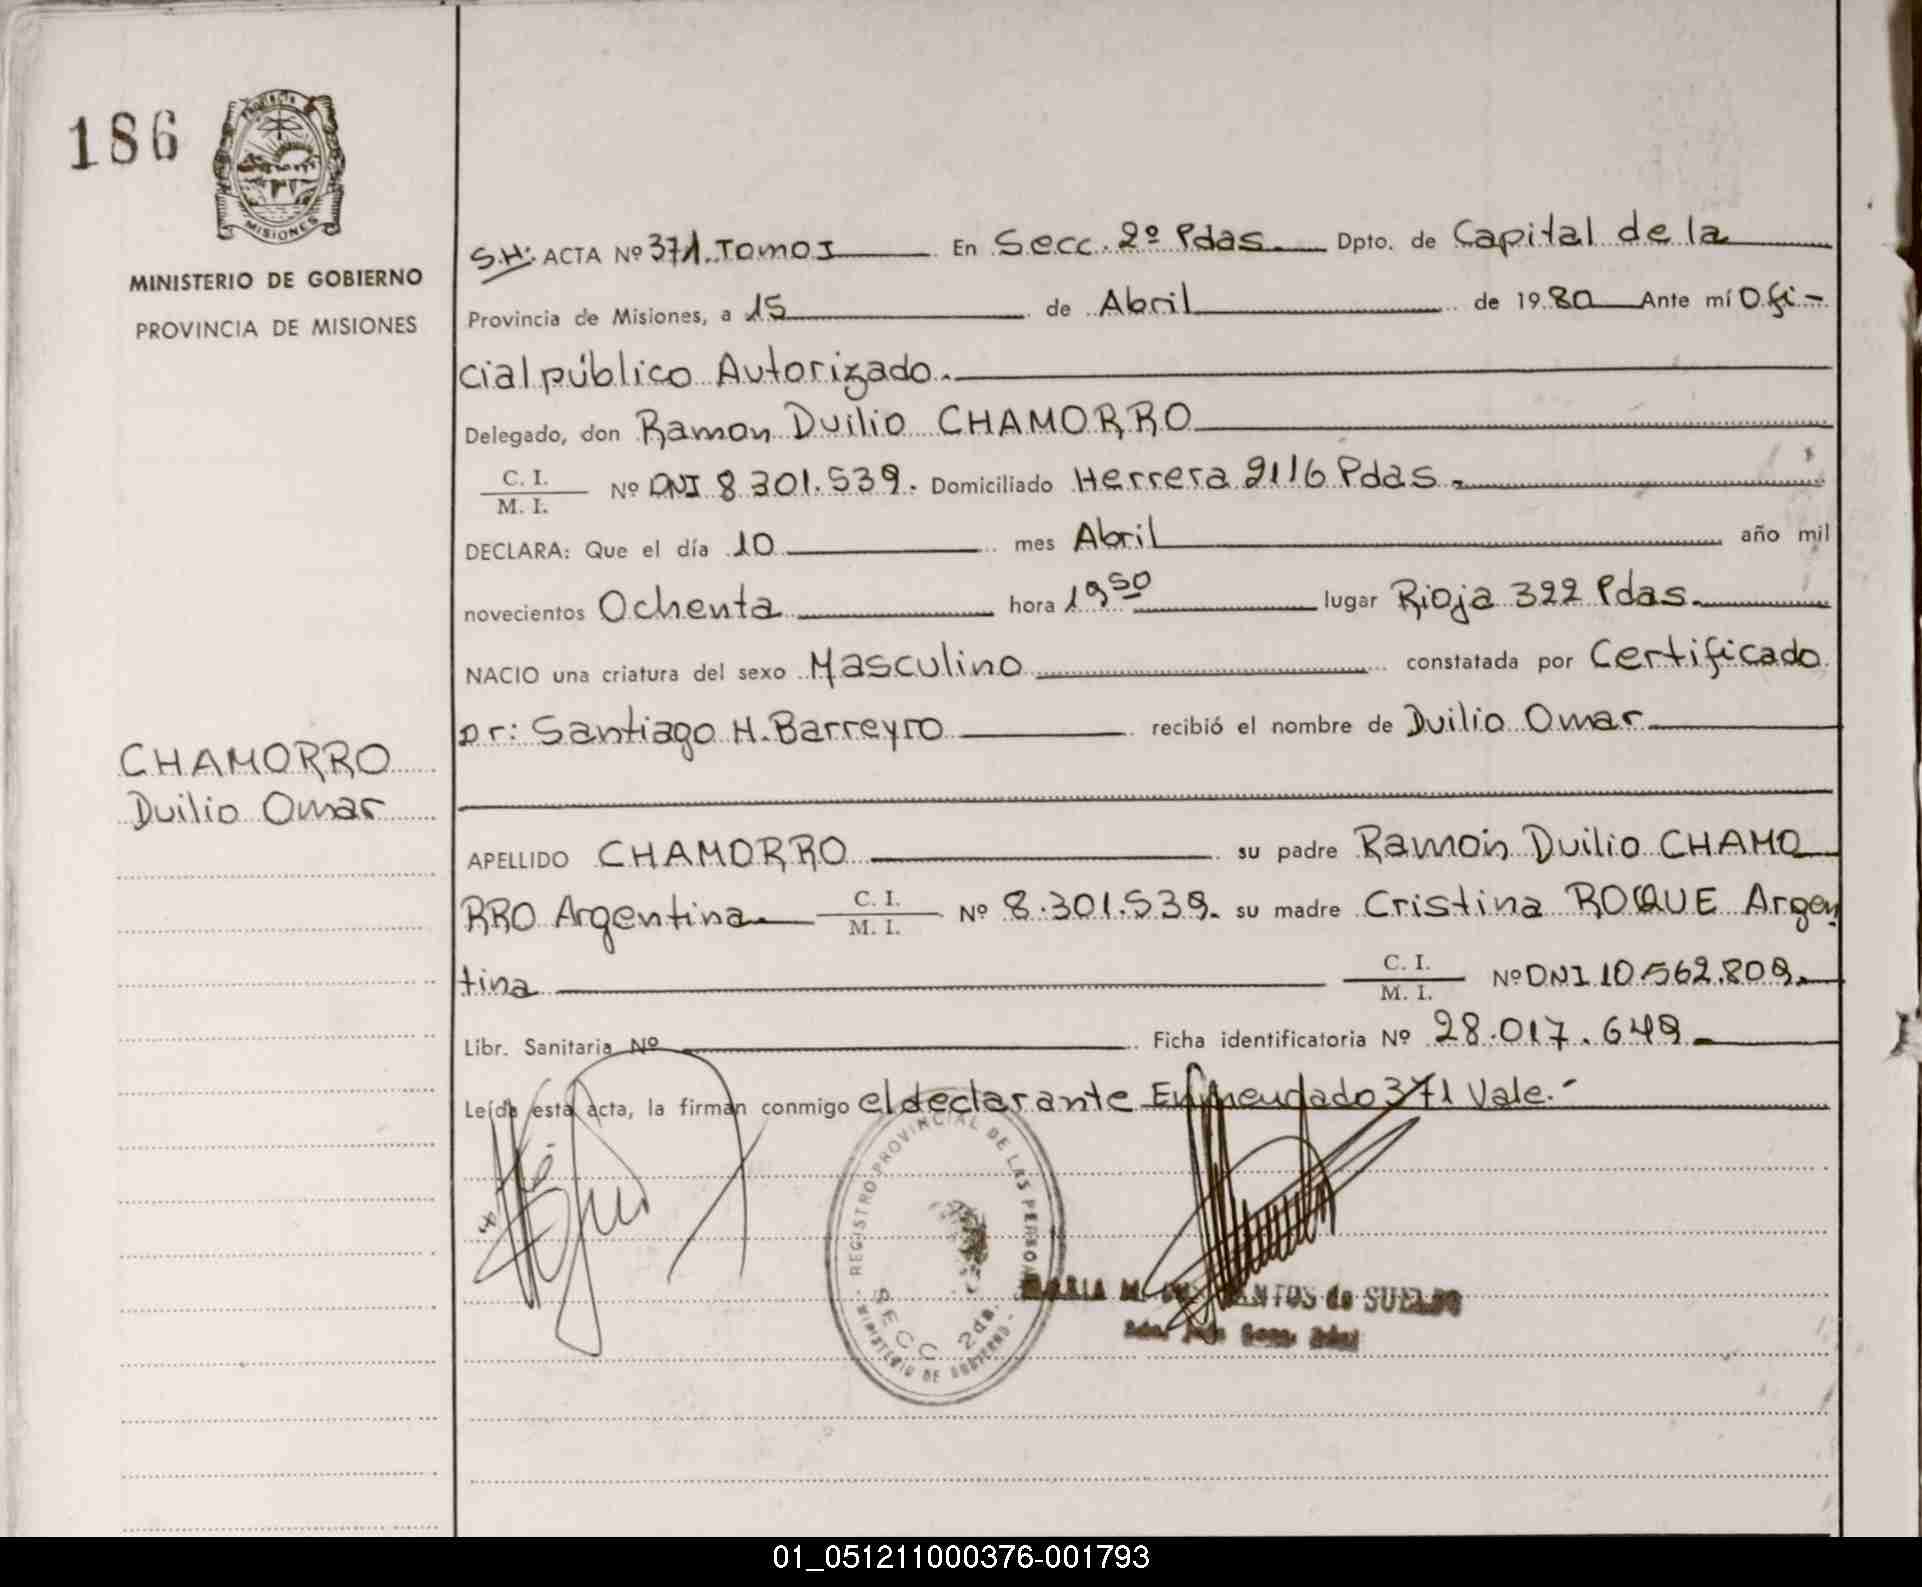 186
Provincia
MISIONES
MINISTERIO DE GOBIERNO
PROVINCIA DE MISIONES
S.H: ACTA Nº 371. Tomo I En Secc. 2º Pdas. Dpto. de Capital de la
Provincia de Misiones, a 15 de Abril de 1980 Ante mí Ofi-
cial público Autorizado.
Delegado, don Ramon Duilio CHAMORRO
C. I.
M. I. Nº DNI 8 301.539. Domiciliado Herrera 2116 Pdas.
DECLARA: Que el día 10 mes Abril año mil
novecientos Ochenta hora 19 50 lugar Rioja 322 Pdas.
NACIO una criatura del sexo Masculino constatada por Certificado
Dr: Santiago H. Barreyro recibió el nombre de Duilio Omar
CHAMORRO
Duilio Omar
APELLIDO CHAMORRO su padre Ramón Duilio CHAMO
RRO Argentina. C. I.
M. I. Nº 8.301.539. su madre Cristina ROQUE Argen
tina C. I.
M. I. Nº DNI 10.562.809.
Libr. Sanitaria Nº Ficha identificatoria Nº 28.017.649
Leída esta acta, la firman conmigo el declarante Enmendado 371 Vale.-
REGISTRO PROVINCIAL DE LAS PERSONAS
SECC 2da.
MINISTERIO DE GOBIERNO
MARIA de SUELDO
01_051211000376-001793